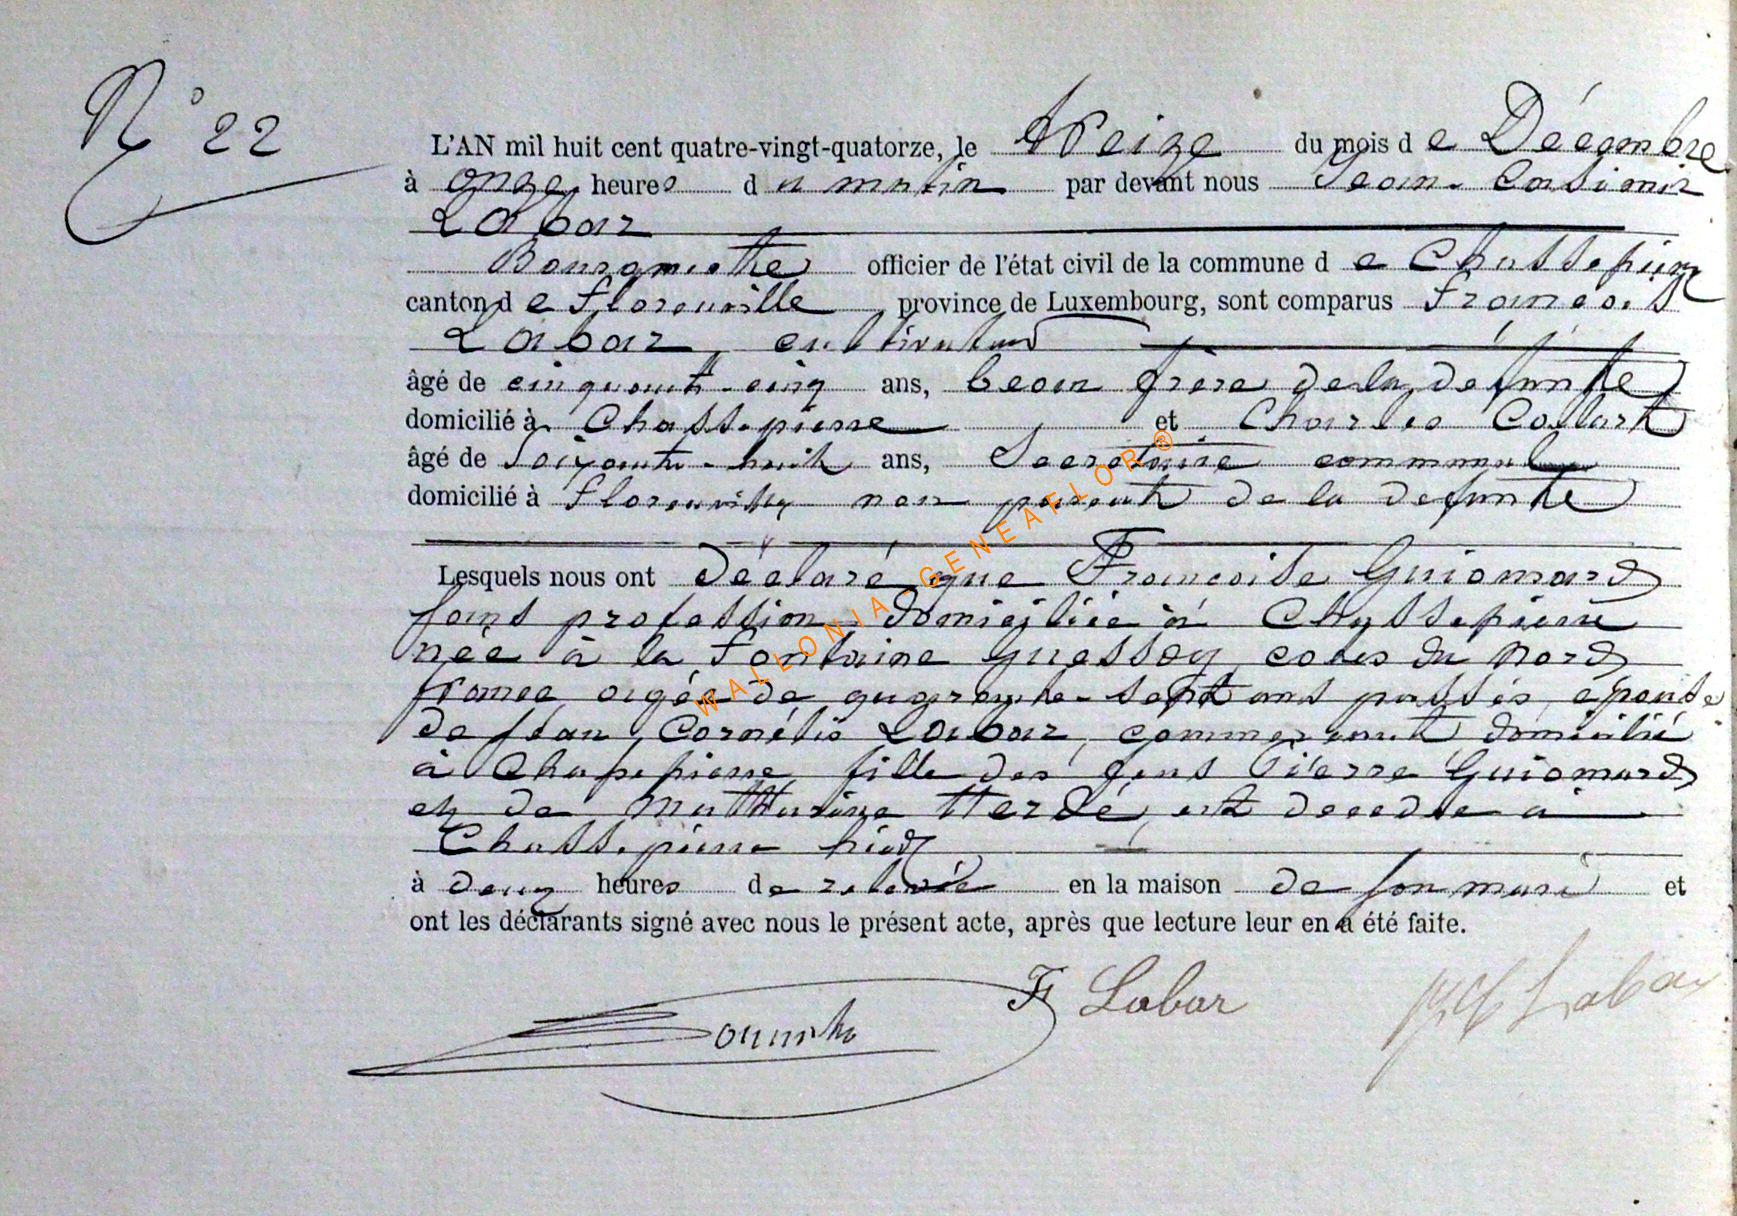 N° 22
L'AN mil huit cent quatre-vingt-quatorze, le treize du mois de Décembre
à onze heures du matin par devant nous Jean Casimir
Labar
Bourgmestre officier de l'état civil de la commune de Chassepierre
canton de Florenville province de Luxembourg, sont comparus François
Labar, cultivateur
âgé de cinquante-cinq ans, beau frère de la défunte
domicilié à Chassepierre et Charles Collart
âgé de Soixante-huit ans, Secretaire communal
domicilié à Florenville non parent de la defunte
Lesquels nous ont déclaré que Françoise Guiomard
sans profession domiciliée à Chassepierre
née à la Fontaine Guessoy, cotes du Nord
france agée de quarante-sept ans passés, épouse
de Jean Cornélis Labar, commercant domicilié
à Chassepierre, fille des feus Pierre Guiomard
et de Mathurine Herdé, est decedée à
Chassepierre hier
à deux heures de relevée en la maison de son mari et
ont les déclarants signé avec nous le présent acte, après que lecture leur en a été faite.
F Labar
Labar
WALLONIA-GENEAFLOR®